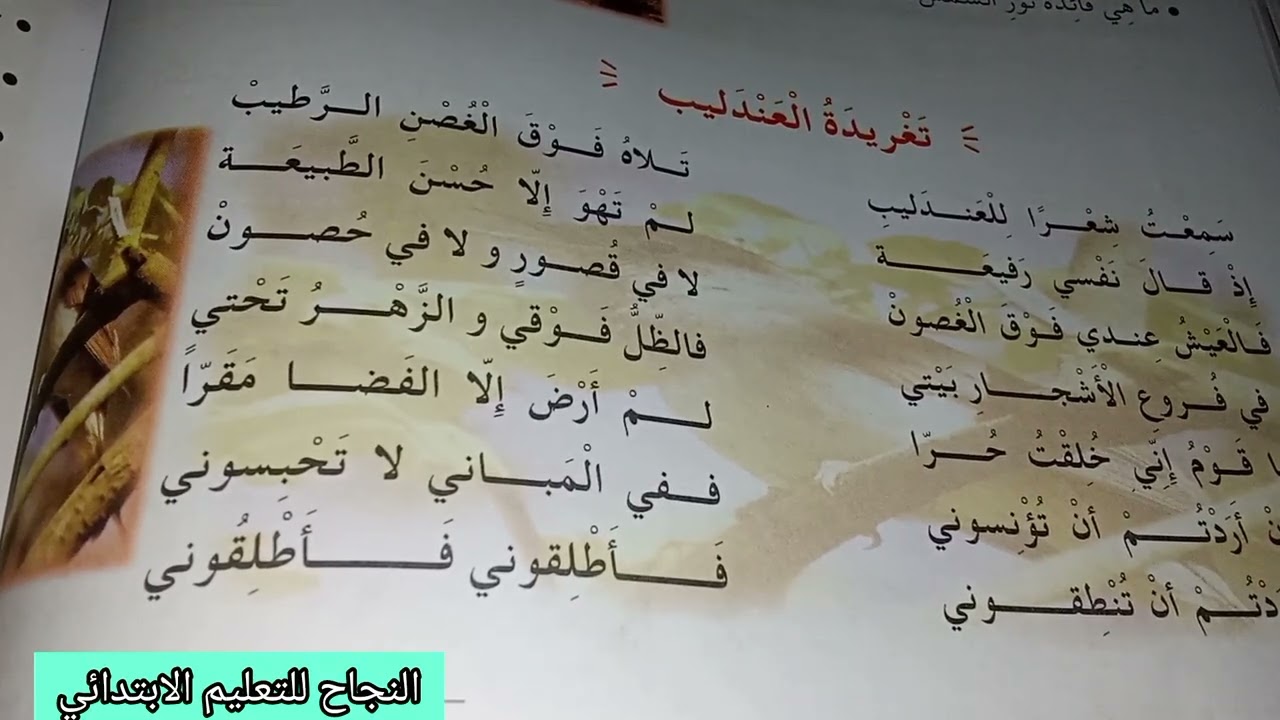 ما هي فائدة نور الشمس
تَغْريدَةُ الْعَنْدَليب
سَمِعْتُ شِعْرًا لِلْعَندَليبِ تَلاهُ فَوْقَ الْغُصْنِ الرَّطيبْ
إِذْ قالَ نَفْسي رَفيعَة لَمْ تَهْوَ إِلّا حُسْنَ الطَّبيعَة
فَالْعَيْشُ عِندي فَوْقَ الْغُصونْ لا في قُصورٍ و لا في حُصونْ
في فُروعِ الْأَشْجارِ بَيْتي فالظِّلُّ فَوْقي و الزَّهْرُ تَحْتي
قَوْمُ إِنِّي خُلِقْتُ حُرّا لَمْ أَرْضَ إِلّا الفَضا مَقَرّاً
أَرَدْتُمْ أنْ تُؤْنِسوني فَفي الْمَباني لا تَحْبِسوني
أنْ تُنْطِقوني فَأَطْلِقوني فَأَطْلِقُوني
النجاح للتعليم الابتدائي